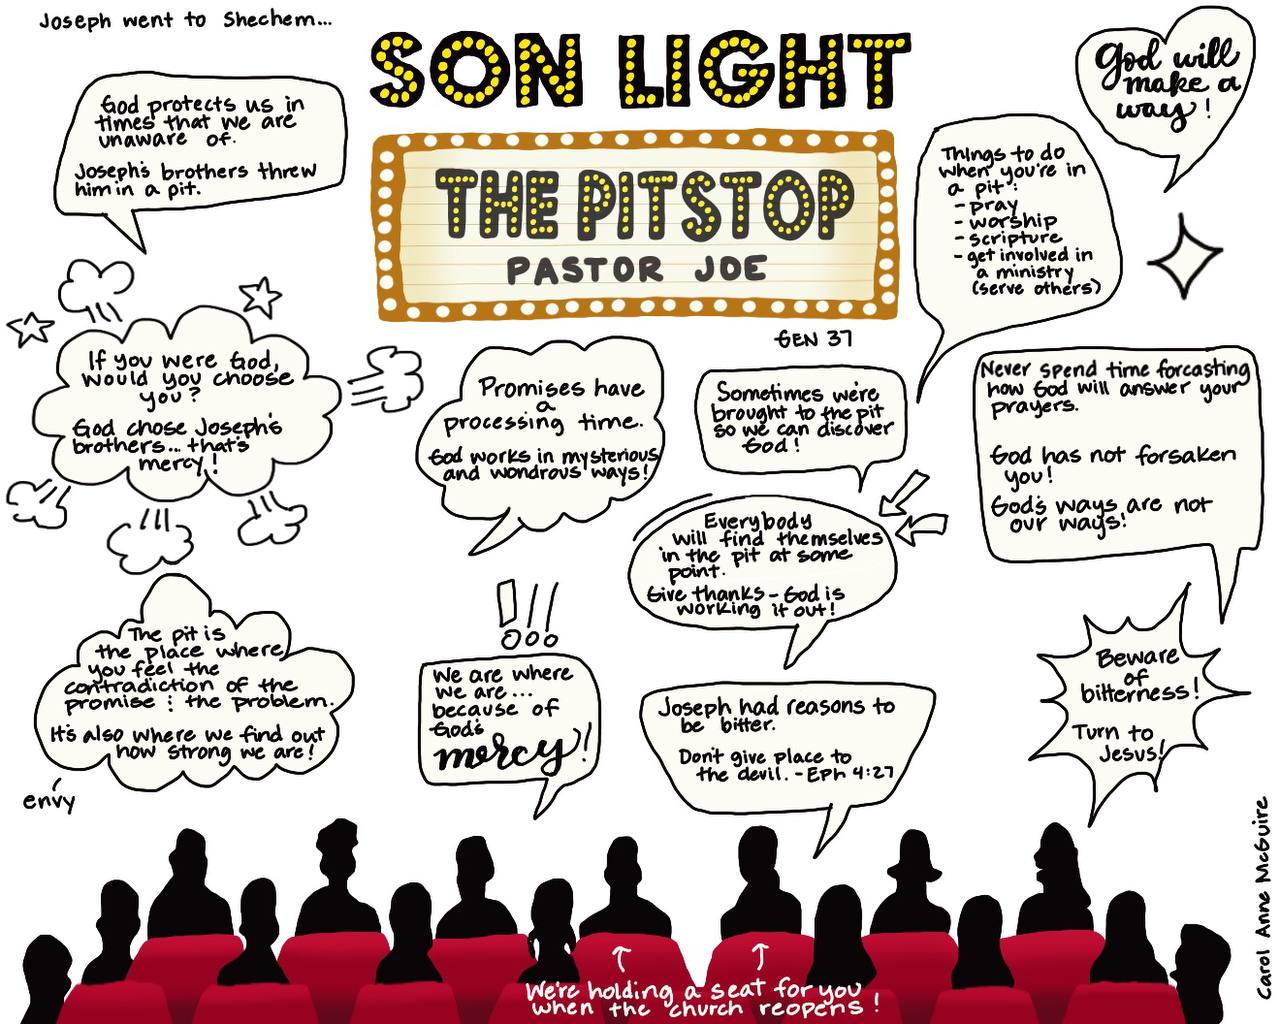 Joseph went to Shechem...
SON LIGHT
THE PITSTOP
PASTOR JOE
GEN 37
God will
make a
way!
God protects us in
times that we are
unaware of.
Joseph's brothers threw
him in a pit.
Things to do
when you're in
a pit:
- pray
- worship
- scripture
- get involved in
a ministry
(serve others)
If you were God,
would you choose
you?
God chose Joseph's
brothers... that's
mercy!
Promises have
a
processing time.
God works in mysterious
and wondrous ways!
Sometimes we're
brought to the pit
so we can discover
God!
Never spend time forcasting
how God will answer your
prayers.
God has not forsaken
you!
God's ways are not
our ways!
Everybody
will find themselves
in the pit at some
point.
Give thanks - God is
working it out!
The pit is
the place where
you feel the
contradiction of the
promise & the problem.
It's also where we find out
how strong we are!
envy
We are where
we are...
because of
God's
mercy!
Joseph had reasons to
be bitter.
Don't give place to
the devil. - Eph 4:27
Beware
of
bitterness!
Turn to
Jesus!
We're holding a seat for you
when the church reopens!
Carol Anne McGuire